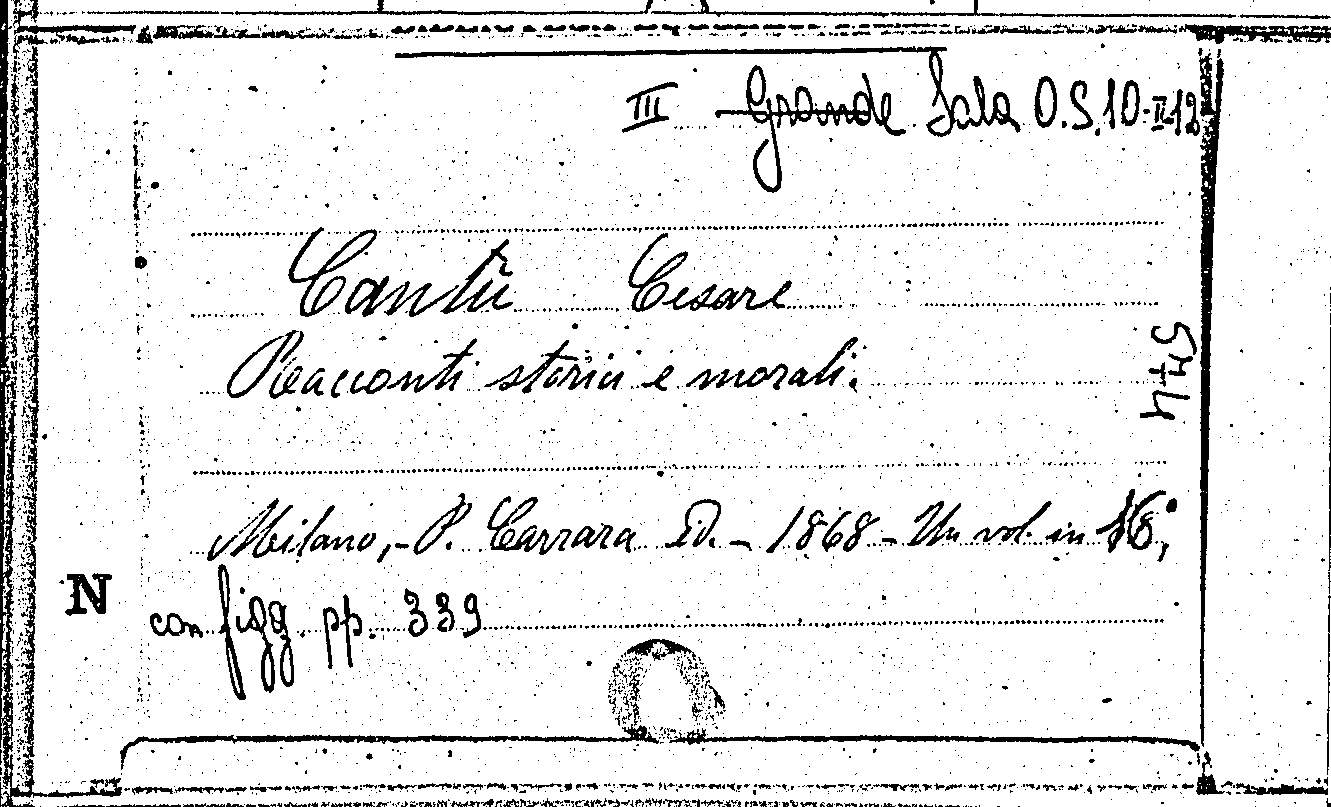 III Grande Sala O.S.10-II-12
Cantù Cesare
Racconti storici e morali.
5414
Milano,- P. Carrara Ed. - 1868 - Un vol. in 16°,
N
con figg. pp. 339